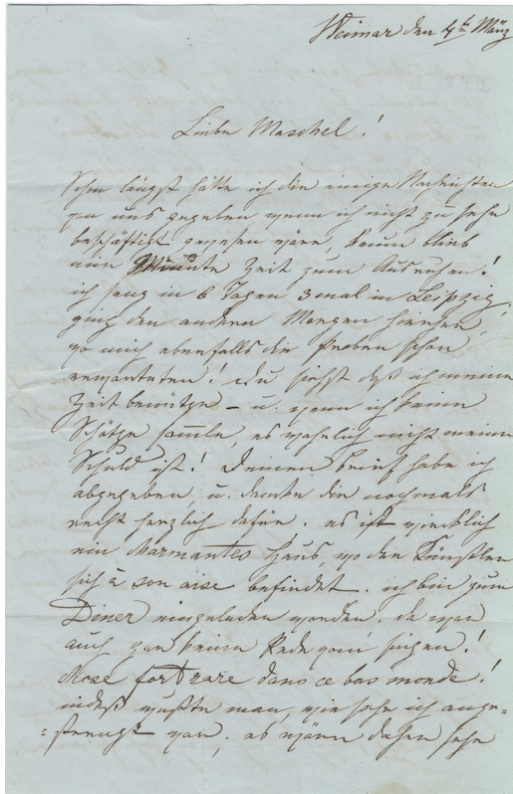 Weimar den 4t März
Liebe Maschel!
Schon längst hätte ich dir einige Nachrichten
von uns gegeben wenn ich nicht zu sehr
beschäftigt gewesen wäre, kaum blieb
mir Minute Zeit zum Ausruhen!
ich sang in 8 Tagen 3 mal in Leipzig,
ging den andern Morgen hierher,
wo mich ebenfalls die Proben schon
erwarteten! Du siehst daß ich meine
Zeit benütze – u. wenn ich keine
Schätze samle, es wahrlich nicht meine
Schuld ist! Deinen Brief habe ich
abgegeben u. danke dir nochmals
recht herzlich dafür. es ist wirklich
ein Haus, wo der Künstler
sich à son aise befindet. ich bin zum
Diner eingeladen worden, da war
auch gar keine Rede vom singen!
fort rare dans ce bas monde!
indeß wußte man, wie sehr ich ange=
=strengt war, es wäre daher sehr